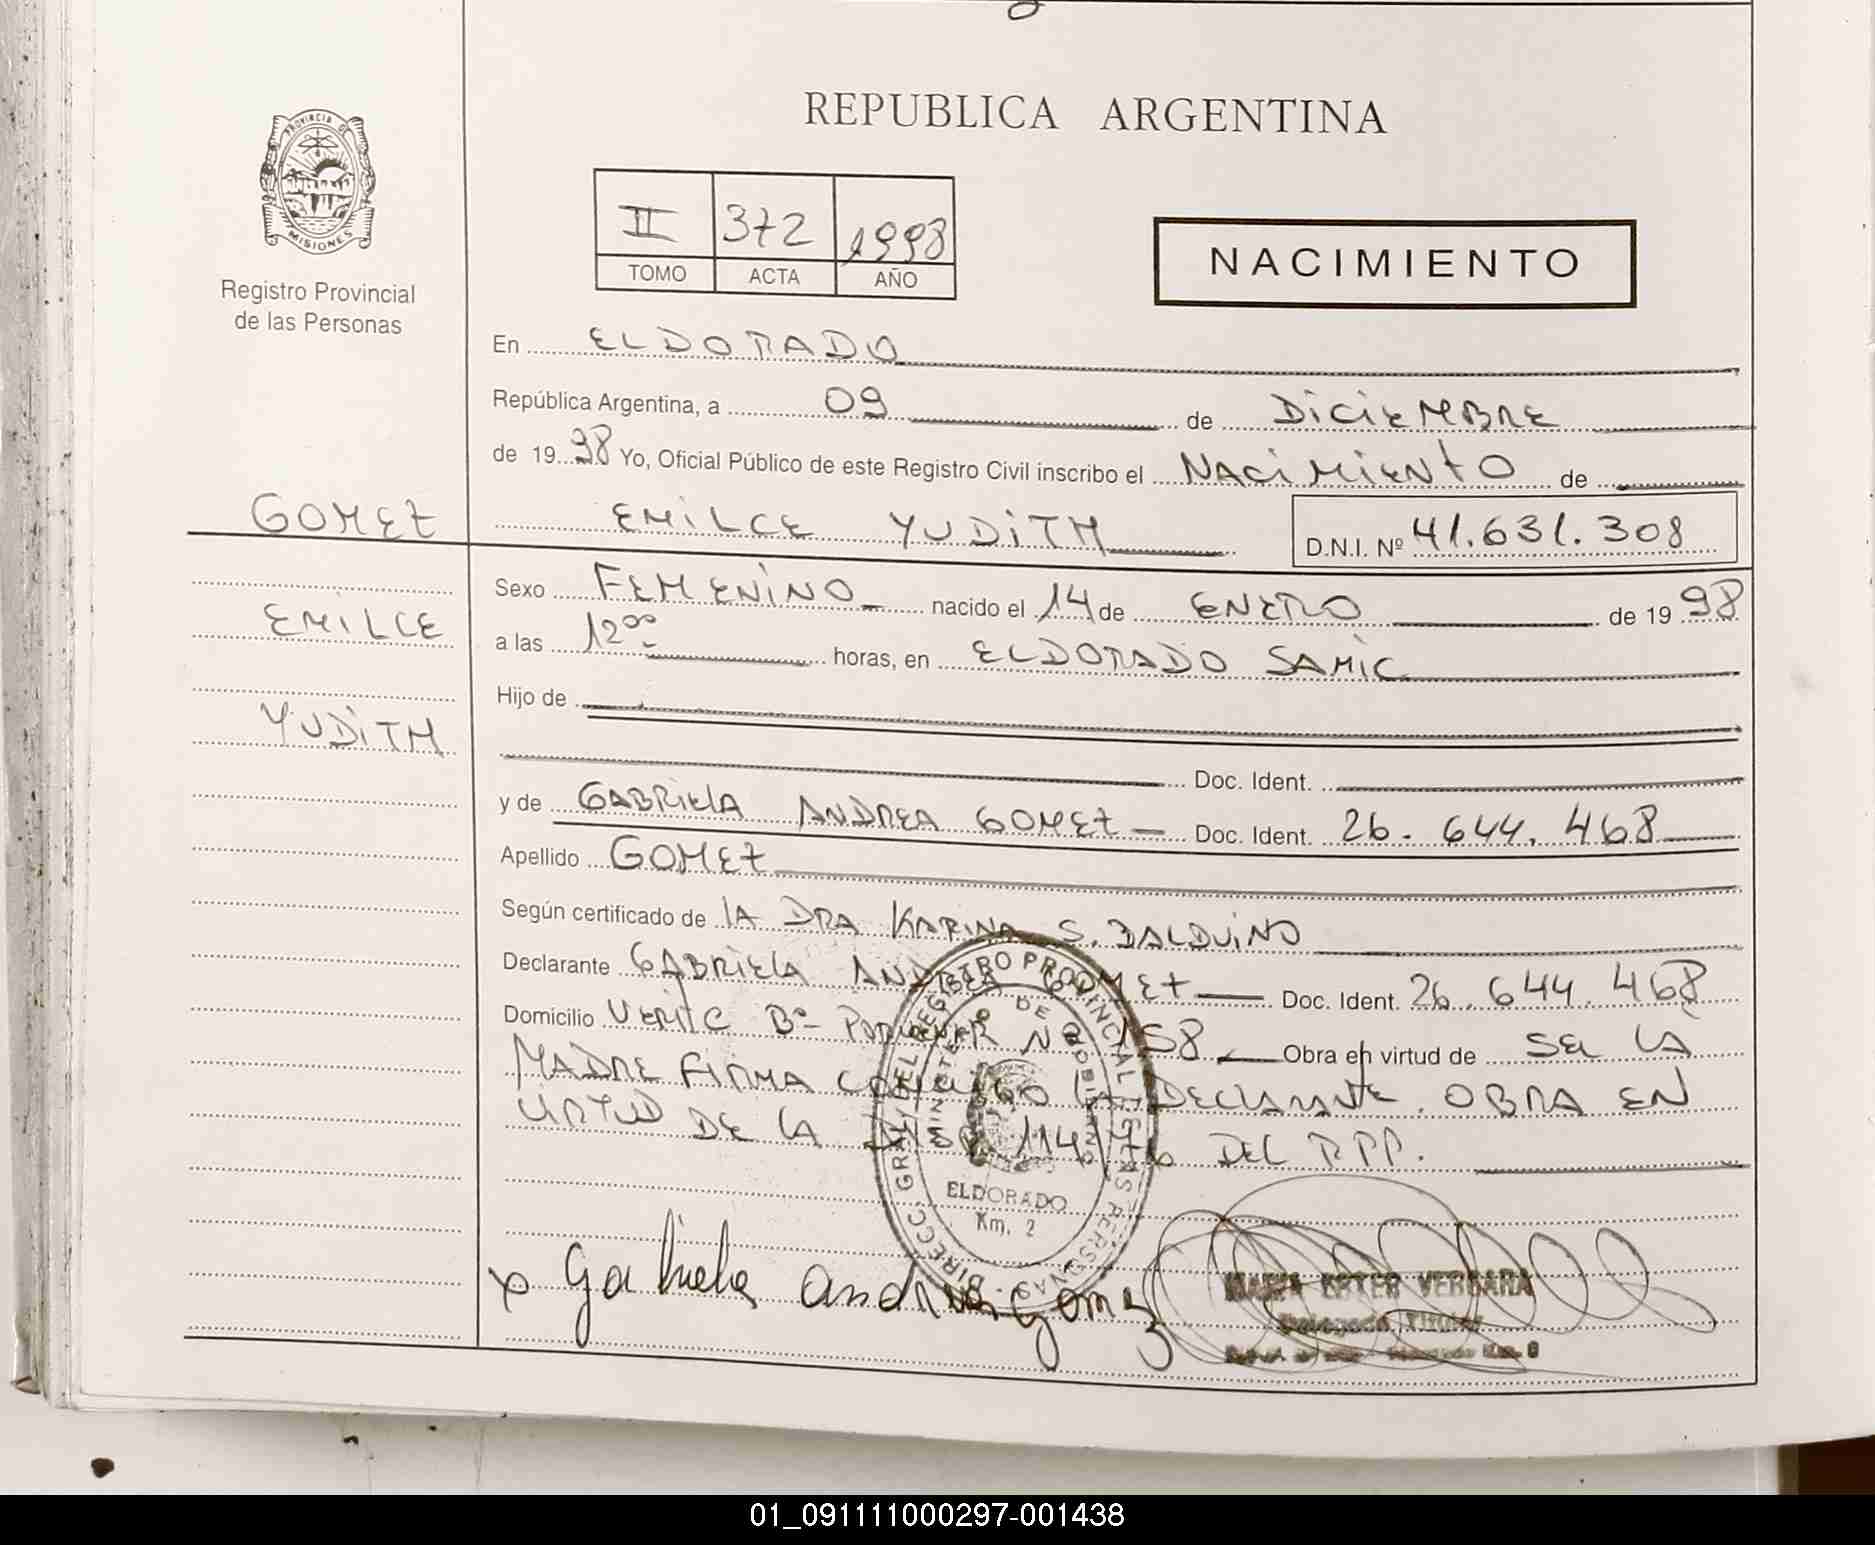 REPUBLICA ARGENTINA
PROVINCIA DE
MISIONES
Registro Provincial
de las Personas
II 372 1998
TOMO ACTA AÑO
NACIMIENTO
En ELDORADO
República Argentina, a 09 de DICIEMBRE
de 19 98 Yo, Oficial Público de este Registro Civil inscribo el NACIMIENTO de
GOMEZ
EMILCE YUDITH D.N.I. Nº 41.631.308
Sexo FEMENINO nacido el 14 de ENERO de 19 98
EMILCE
a las 12 00 horas, en ELDORADO SAMIC
Hijo de
YUDITH
Doc. Ident.
y de GABRIELA ANDREA GOMEZ Doc. Ident. 26.644.468
Apellido GOMEZ
Según certificado de LA DRA KARINA S. BALDUINO
Declarante GABRIELA ANDREA GOMEZ Doc. Ident. 26.644.468
Domicilio Bº Nº 158 Obra en virtud de SER LA
MADRE FIRMA CONMIGO LA DECLARANTE. OBRA EN
VIRTUD DE LA 114/76 DEL R.P.P.
DIRECC. GRAL. DEL REGISTRO PROVINCIAL DE LAS PERSONAS
MINISTERIO DE GOBIERNO
ELDORADO
Km. 2
x Gabriela Andrea Gomez
MARIA ESTER VERGARA
Delegada Titular
01_091111000297-001438